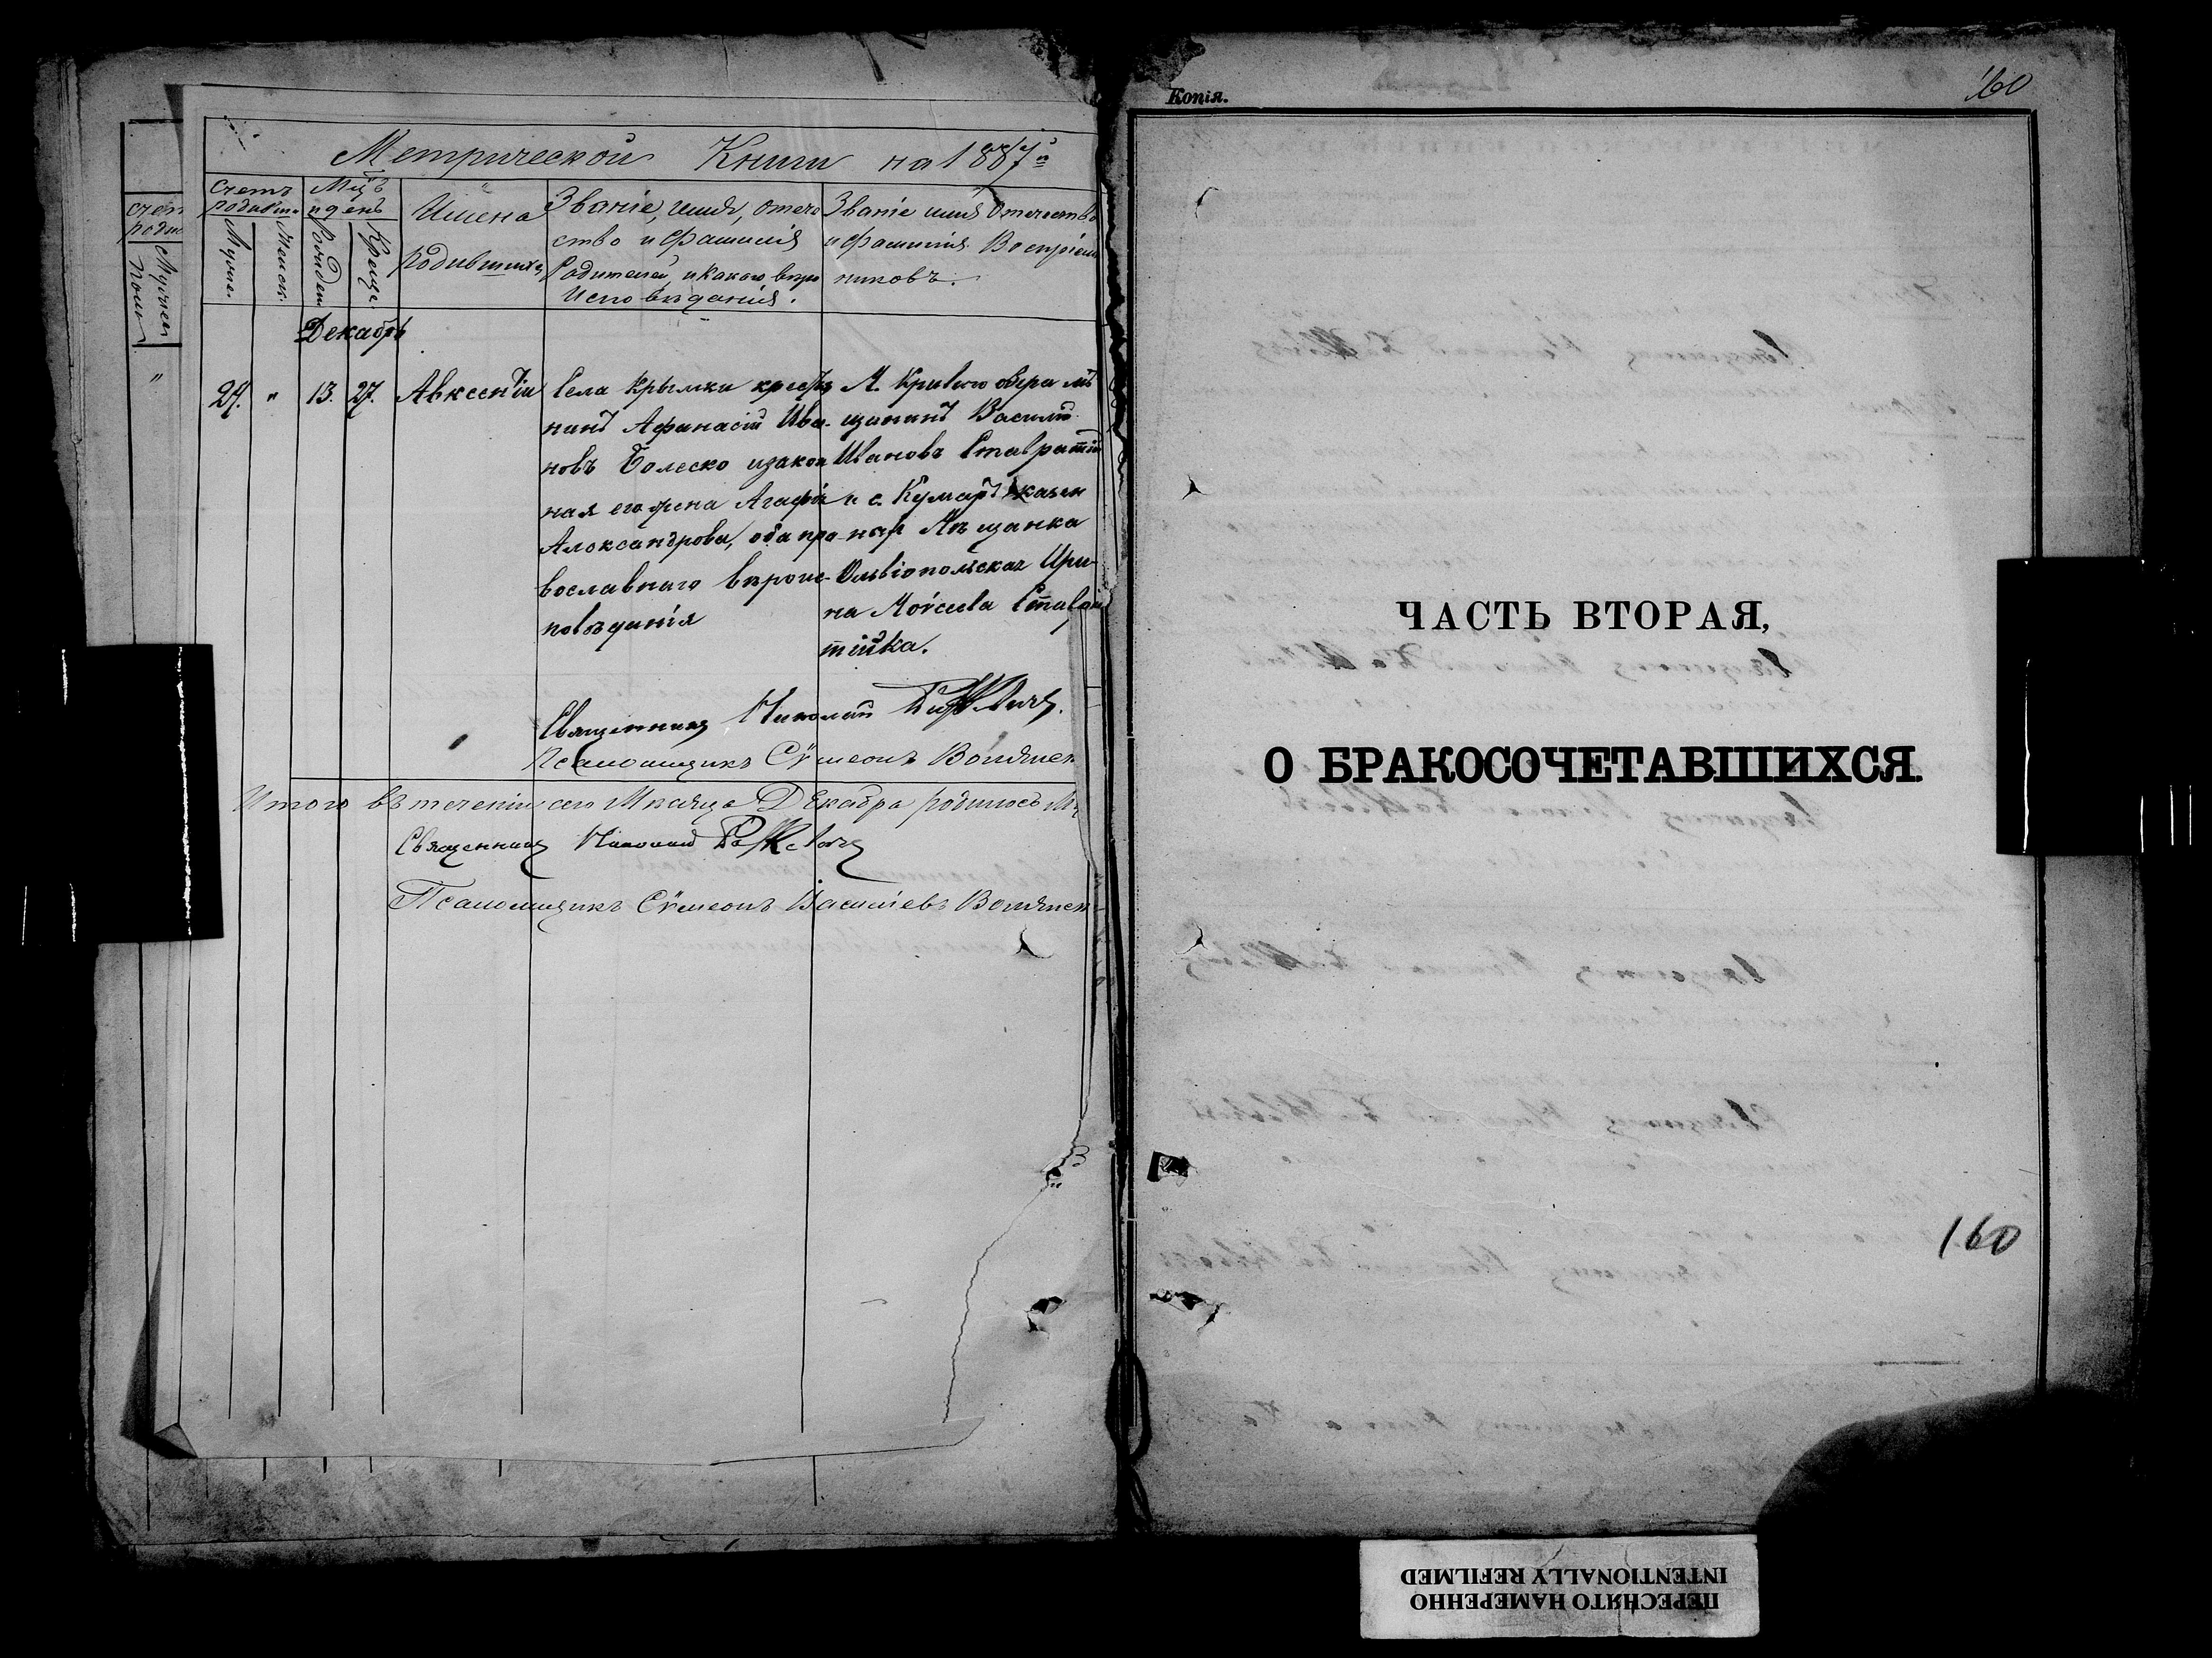 Метрической Книги на 1887й
счетъ родивш.
Мцъ и день
Имена Родившихъ
Званіе, имя, отече
ство и фамилія
Родителей, и какого вѣро
Исповѣданія.
Званіе имя Отечество
и фамилія. Воспріем
никовъ.
Мужес.
Женск.
Рожден.
Крещ.
Декабрь
24. " 13. 27. Авксентій
Села Крымки кресть
нинъ Афанасій Ива-
новъ Болеско и закон
ная его жена Агафія
Александрова, оба пра-
вославнаго вѣроис-
повѣданія
М. Криваго озера мѣ
щанинъ Василій
Ивановъ Ставратій
и с.
Мѣщанка
Ольвіопольская Ири-
на Моѵсеева Ставра
тійка.
Священникъ Николай
Псаломщикъ Сѵмеонъ
Итого въ теченіи сего Мѣсяца Декабра родилось
Священникъ Николай
Псаломщикъ Сѵмеонъ Василіевъ
Копія.
160
ЧАСТЬ ВТОРАЯ,
О БРАКОСОЧЕТАВШИХСЯ.
160
ПЕРЕСНЯТО НАМЕРЕННО
INTENTIONALLY REFILMED